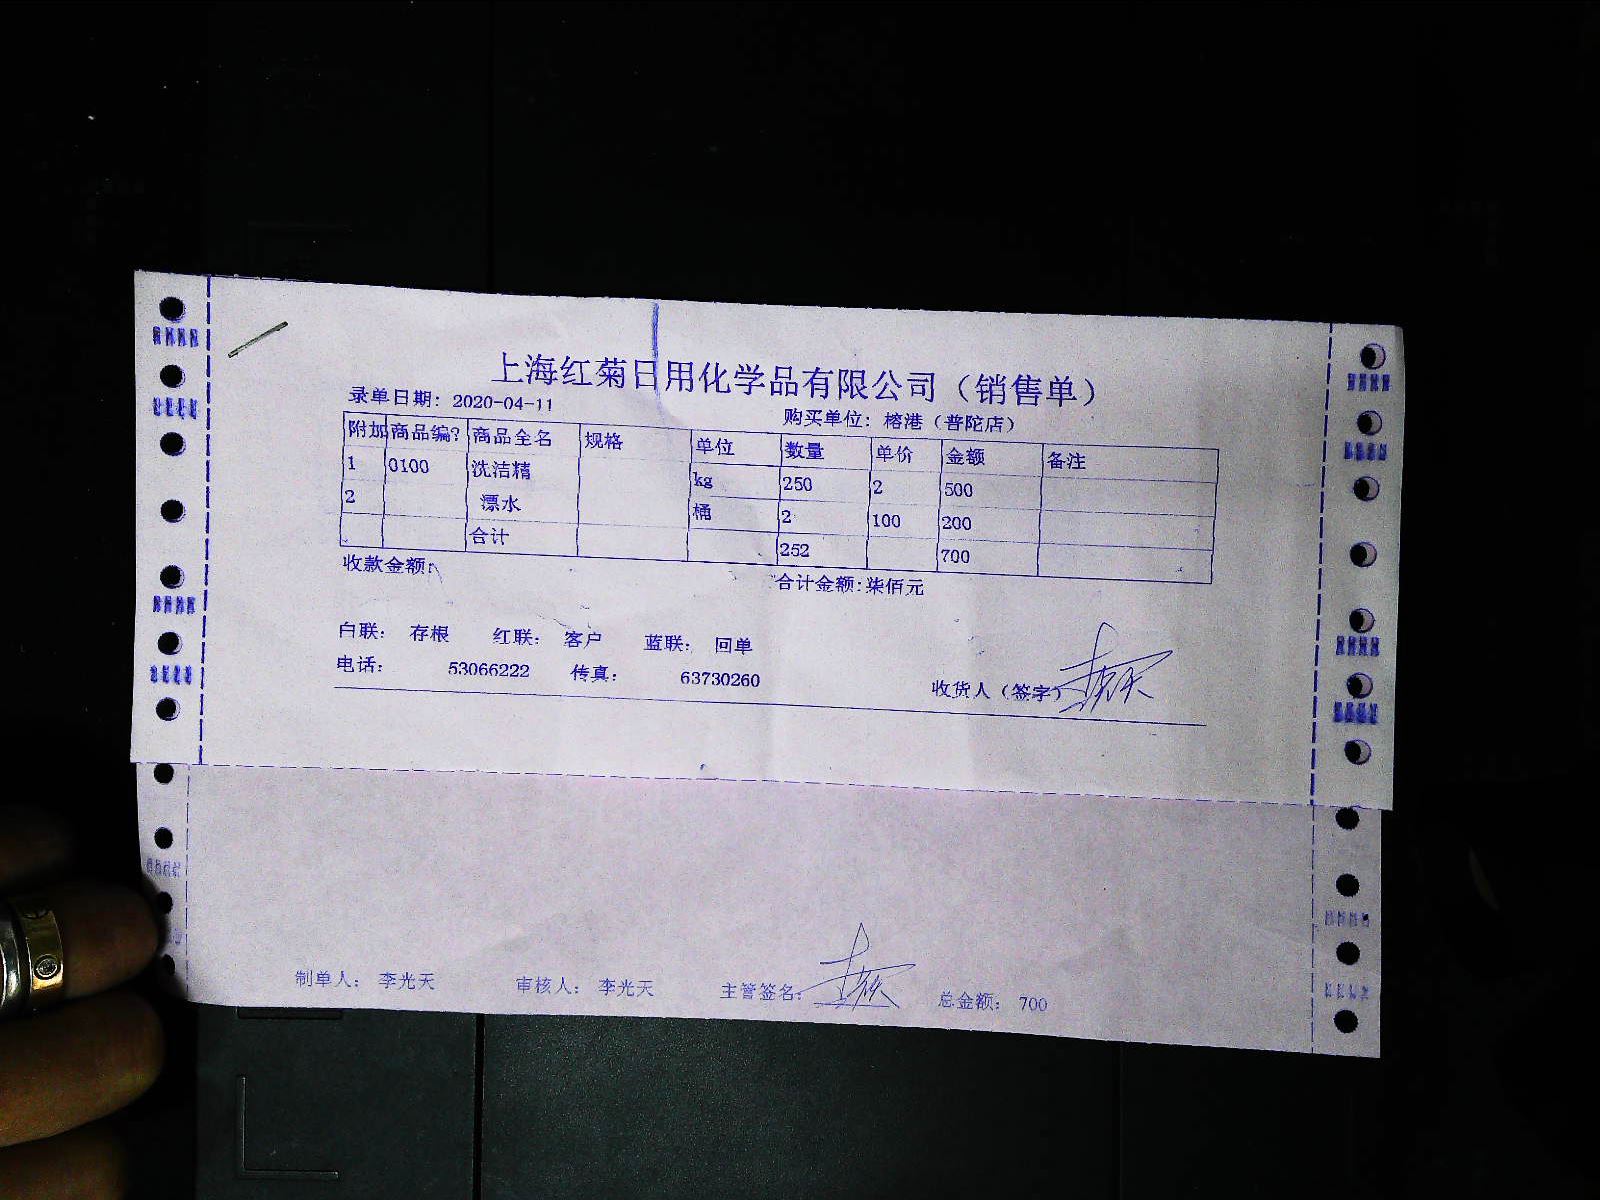 上海红菊日用化学品有限公司（销售单）
录单日期：2020-04-11 购买单位：榕港（普陀店）
附加 商品编? 商品全名 规格 单位 数量 单价 金额 备注
1 0100 洗洁精 kg 250 2 500
2 漂水 桶 2 100 200
合计 252 700
收款金额： 合计金额:柒佰元
白联： 存根 红联： 客户 蓝联： 回单
电话： 53066222 传真： 63730260
收货人（签字）
制单人： 李光天 审核人： 李光天 主管签名： 总金额： 700